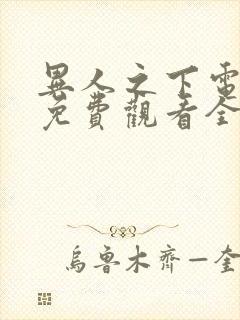 異人之下電
免費觀看全
烏魯木齊—奎